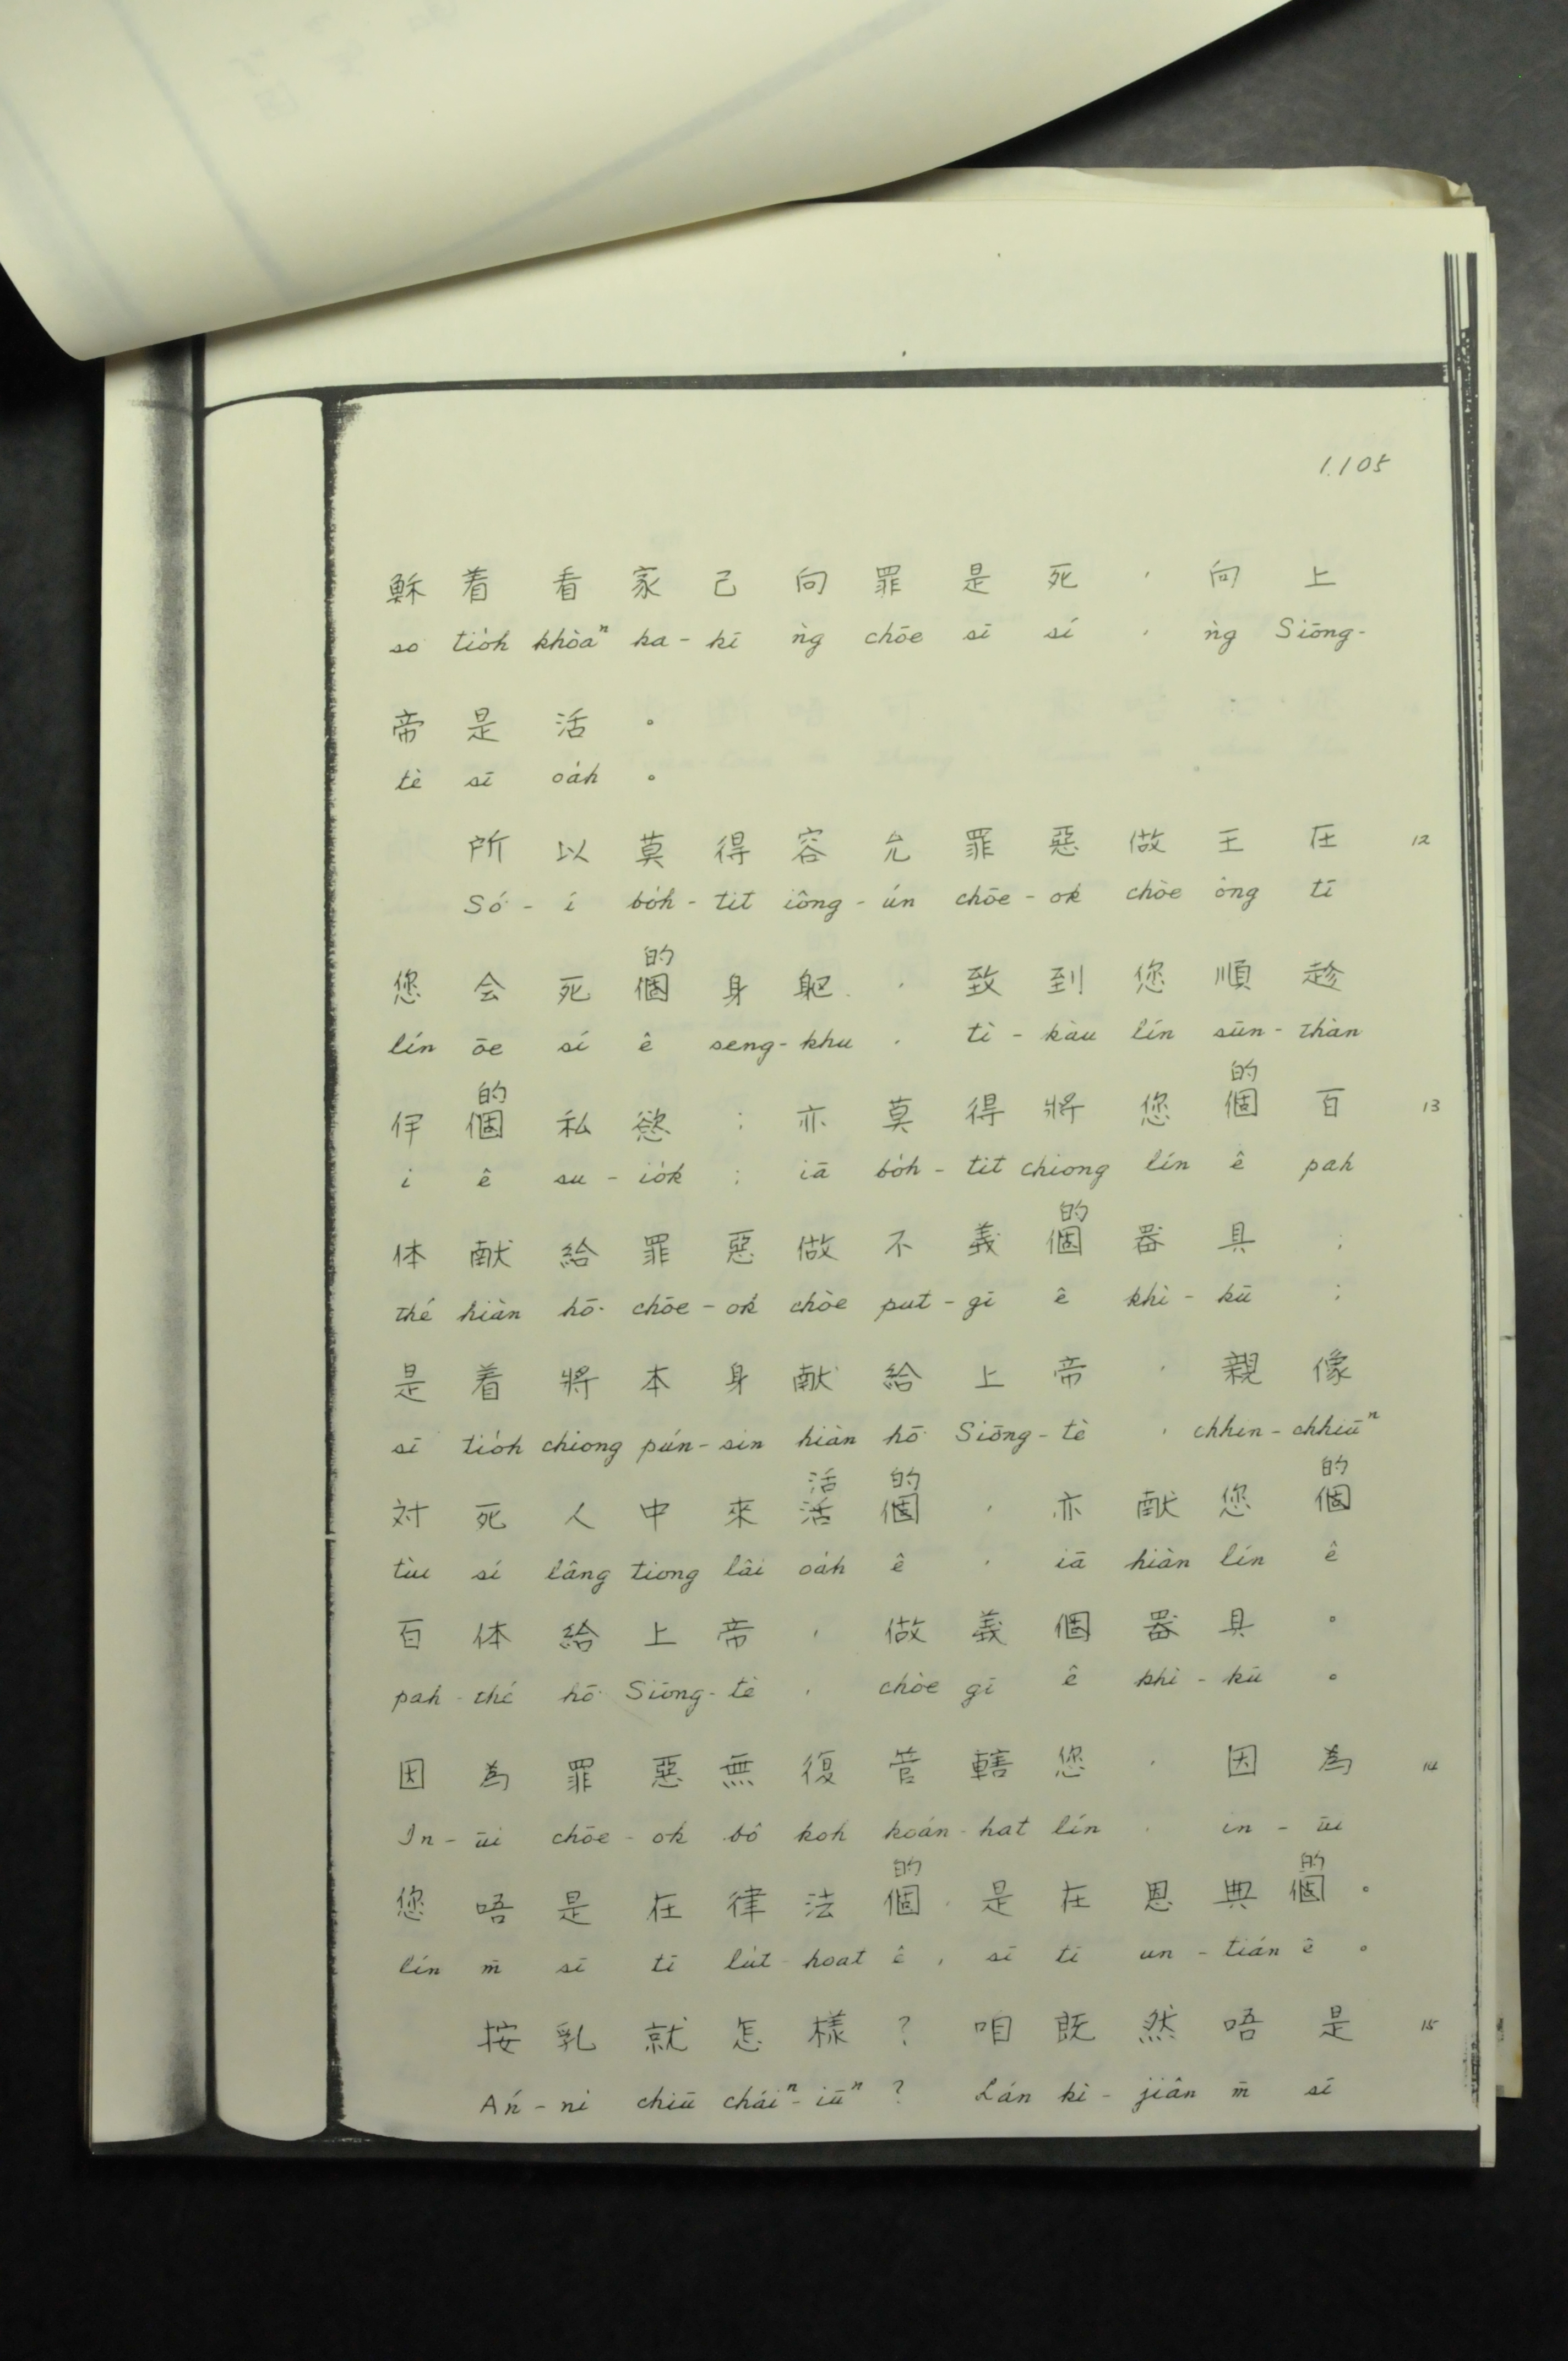 1.105
穌 着 看 家 己 向 罪 是 死 , 向 上
so͘ tio̍h khòaⁿ ka - kī ǹg chōe sī sí , ǹg Siōng-
帝 是 活 。
tè sī oa̍h 。
所 以 莫 得 容 允 罪 惡 做 王 在 12
Só͘ - í bo̍h - tit iông - ún chōe - ok chòe ông tī
的
您 会 死 個 身 軀 , 致 到 您 順 趁
lín ōe sí ê seng - khu , tì - kàu lín sūn - thàn
的 的
伊 個 私 慾 ; 亦 莫 得 將 您 個 百 13
i ê su - io̍k ; iā bo̍h - tit chiong lín ê pah
的
体 献 給 罪 惡 做 不 義 個 器 具 ;
thé hiàn hō͘ chōe - ok chòe put - gī ê khì - kū ;
是 着 將 本 身 献 給 上 帝 , 親 像
sī tio̍h chiong pún - sin hiàn hō͘ Siōng - tè , chhin - chhiūⁿ
活 的 的
対 死 人 中 來 活 個 , 亦 献 您 個
tùi sí lâng tiong lâi oa̍h ê , iā hiàn lín ê
百 体 給 上 帝 , 做 義 個 器 具 。
pah - thé hō͘ Siōng - tè , chòe gī ê khì - kū 。
因 為 罪 惡 無 復 管 轄 您 , 因 為 14
In - ūi chōe - ok bô koh koán - hat lín , in - ūi
的 的
您 唔 是 在 律 法 個 , 是 在 恩 典 個 。
lín m̄ sī tī lu̍t - hoat ê , sī tī un - tián ê 。
按 乳 就 怎 樣 ? 咱 既 然 唔 是 15
Án - ni chiū cháiⁿ - iūⁿ ? Lán kì - jiân m̄ sī